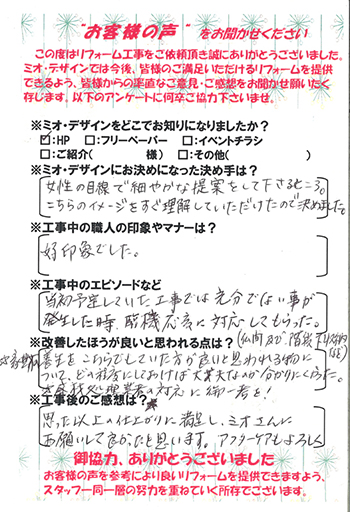 "お客様の声" をお聞かせください
この度はリフォーム工事をご依頼頂き誠にありがとうございました。
ミオ・デザインでは今後、皆様のご満足いただけるリフォームを提供
できるよう、皆様からの率直なご意見・ご感想をお聞かせ願いたく
存じます。以下のアンケートに何卒ご協力下さいませ。
※ミオ・デザインをどこでお知りになりましたか？
☑:HP □:フリーペーパー □:イベントチラシ
□:ご紹介( 様) □:その他( )
※ミオ・デザインにお決めになった決め手は？
女性の目線で細やかな提案をして下さるところ。
こちらのイメージをすぐ理解していただけたので決めました
※工事中の職人の印象やマナーは？
好印象でした。
※工事中のエピソードなど
当初予定していた工事では充分ではない事が
発生した時、臨機応変に対応してもらった。
※改善したほうが良いと思われる点は？
養生をこちらでしていた方が良いと思われる物に
ついて、どの程度にしておけば大丈夫なのか分かりにくかった。
※工事後のご感想は？
思った以上の仕上がりに満足し、ミオさんに
お願いして良かったと思います。アフターケアもよろしく
御協力、ありがとうございました
お客様の声を参考により良いリフォームを提供できますよう、
スタッフ一同一層の努力を重ねていく所存でございます。